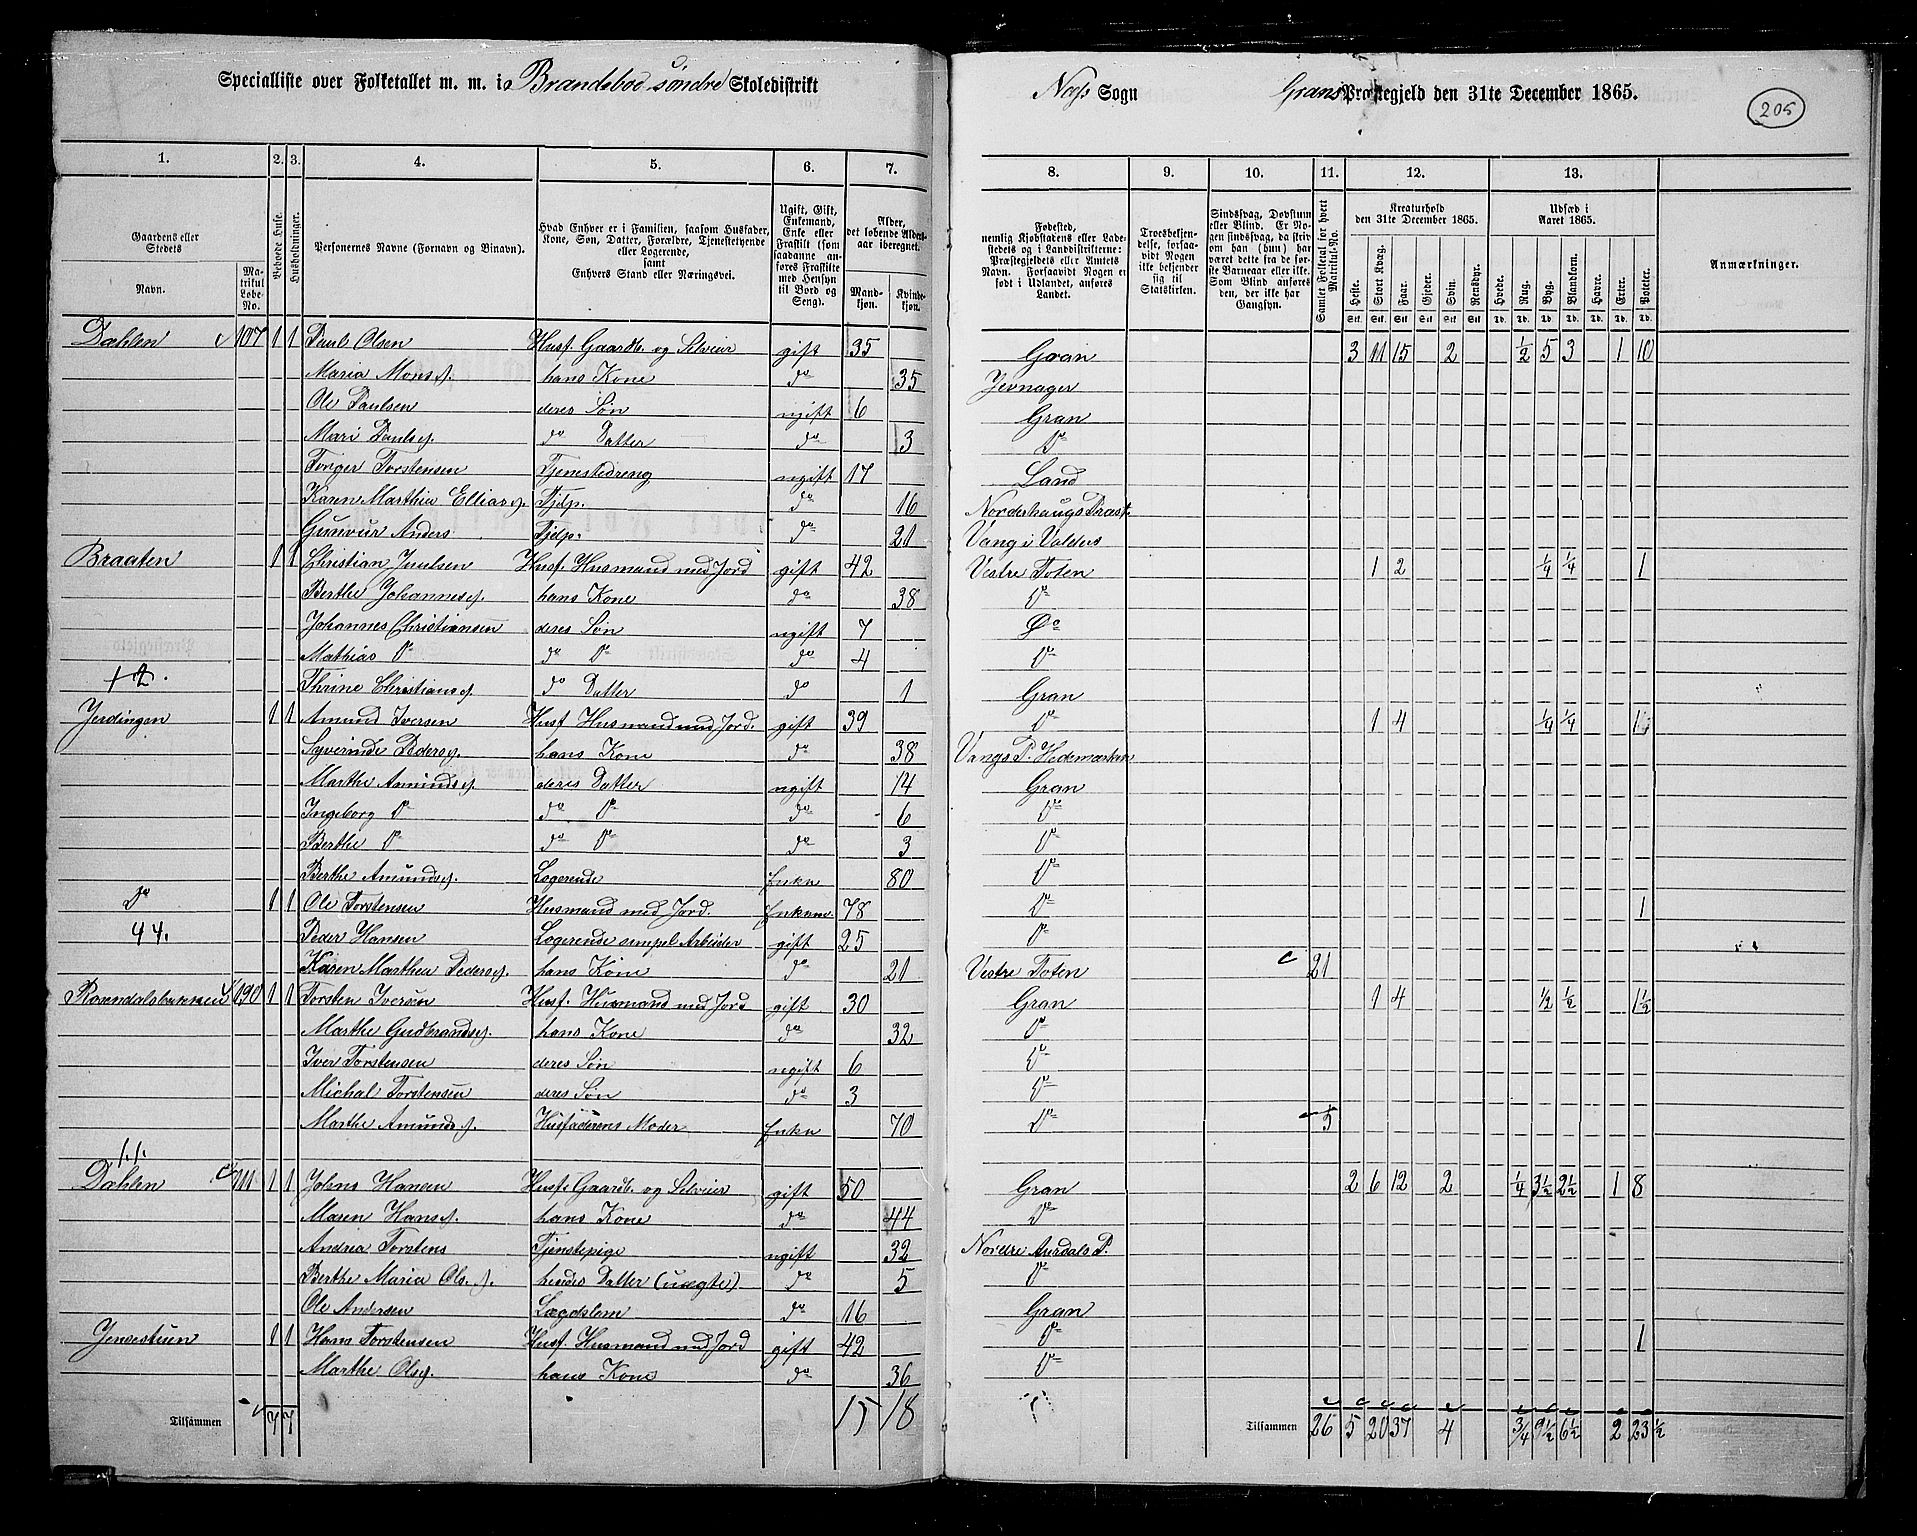 Specialliste over Folketallet m. m. i Brandsbod søndre Skoledistrikt
Næs Sogn Grans Præstegjeld den 31te December 1865.
205
1. 2. 3. 4. 5. 6. 7.
8. 9. 10. 11. 12. 13.
Gaardens eller Stedets
Navn.
Matrikul Løbe-No.
Beboede Huse.
Husholdninger.
Personernes Navne (Fornavn og Binavn).
Hvad Enhver er i Familien, saasom Husfader, Kone, Søn, Datter, Forældre, Tjenestetyende eller Logerende, samt Enhvers Stand eller Næringsvei.
Ugift, Gift, Enkemand, Enke eller Fraskilt (som saadanne anføres Fraskilte med Hensyn til Bord og Seng).
Alder, det løbende Aldersaar iberegnet.
Mandkjøn. Kvindekjøn.
Fødested, nemlig Kjøbstadens eller Ladestedets og i Landdistrikterne: Præstegjeldets eller Amtets Navn. Forsaavidt Nogen er født i Udlandet, anføres Landet.
Troesbekjendelse, forsaavidt Nogen ikke bekjender sig til Statskirken.
Sindssvag, Døvstum eller Blind. Er Nogen sindssvag, da skriv om han (hun) har været dette fra de første Barneaar eller ikke. Som Blind anføres den, der ikke har Gangsyn.
Samlet Folketal for hvert Matrikul-No.
Kreaturhold den 31te December 1865.
Heste. Stort Kvæg. Faar. Gjeder. Svin. Rensdyr.
Udsæd i Aaret 1865.
Hvede. Rug. Byg. Blandkorn. Havre. Erter. Poteter.
Anmærkninger.
Dæhlen 107 1 1 Paul Olsen Husf. Gaardb. og Selveier gift 35 Gran 3 11 15 2 1/2 5 3 1 10
Maria Monsd. hans Kone do 35 Jevnager
Ole Paulsen deres Søn ugift 6 Gran
Mari Paulsd. do Datter do 3 Do
Torger Torstensen Tjenestedreng ugift 17 Land
Karen Marthia Elliasd. Tjdp. do 16 Norderhaugs Præst.
Gunvur Anders Tjdp. do 21 Vang i Valders
Braaten 1 1 Christian Juulsen Husf. Husmand med Jord gift 42 Vestre Toten 1 2 1/4 1/4 1
Berthe Johannesd. hans Kone do 38 Do
Johannes Christiansen deres Søn ugift 7 Do
Mathias Do do Do do 4 Do
+2. Thrine Christiansd. do Datter do 1 Gran
Jerdingen 1 1 Amund Iversen Husf. Husmand med Jord. gift 39 Do 1 4 1/4 1/4
Syverinde Pedersd. hans Kone do 38 Vangs P. Hedemarken
Marthe Amundsd. deres Datter ugift 14 Gran
Ingeborg Do do Do do 6 Do
Berthe Do do Do do 3 Do
Berthe Amundsd. Logerende Enke 80 Do
Do 1 1 Ole Torstensen Husmand med Jord. Enkem 78 Do 1
44. Peder Hansen Logerende simpel Arbeider gift 25 Do
Karen Marthea Pedersd. hans Kone do 21 Vestre Toten 21
Rosendalsbakken 190 1 1 Torsten Iversen Husf. Husmand med Jord gift 30 Gran 1 4 1/2 1/2 1 1/2
Marthe Gudbrandsd. hans Kone do 32 Do
Iver Torstensen deres Søn ugift 6 Do
Michal Torstensen deres Søn do 3 Do
Marthe Amundsd. Husfaderens Moder Enke 70 Do 5
Dæhlen 111 1 1 Johns Hansen Husf. Gaardb. og Selveier gift 50 Gran 2 6 12 2 1/4 3 1/2 2 1/2 1 8
Maren Hansd. hans Kone do 44 Do
Andrea Torstens Tjenstepige ugift 32 Nordre Aurdals P.
Berthe Maria Ols.d. hendes Datter (uægte) do 5 Do
Ole Andersen Lægdslem do 16 Gran
Jensestuen 1 1 Hans Torstensen Husf. Husmand med Jord gift 42 Do 1
Marthe Olsd. hans Kone do 36 Do
Tilsammen 7 7 15 18
Tilsammen 26 5 20 37 4 3/4 9 1/2 6 1/2 2 23 1/2